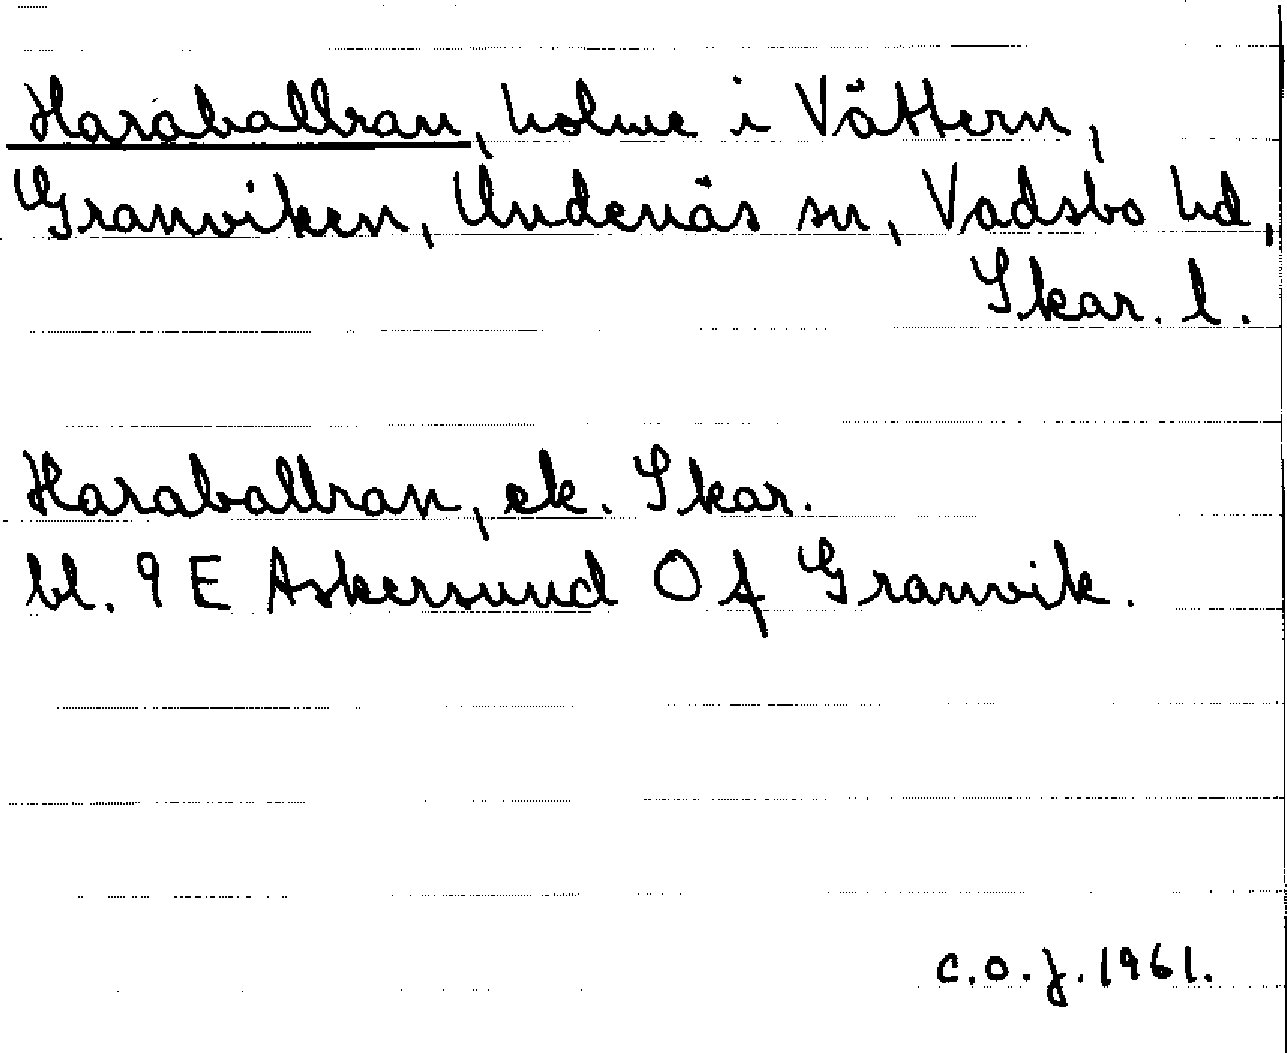 Haraballran, holme i Vättern,
Granviken, Undenäs sn, Vadsbo hd,
Skar. l.
Haraballran, ek. Skar.
bl. 9 E Askersund O f Granvik.
C.O.J. 1961.